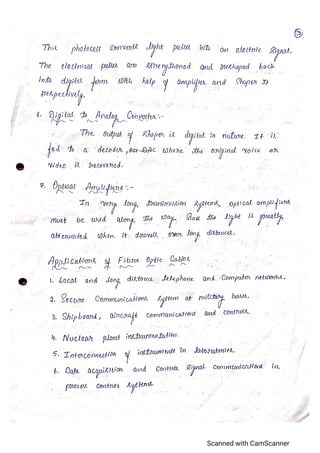 5
This photocell converts light pulse into an electric signal.
The electrical pulses are strengthened and reshaped back
into digital form with help of amplifier and shaper
respectively.
6. Digital to Analog Converter:-
The output of shaper is digital in nature. It is
fed to a decoder, or DAC where the original voice or
video is recovered.
7. Optical Amplifiers:-
In very long transmission systems, optical amplifiers
must be used along the way. Since the light is greatly
attenuated when it travels over long distances.
Applications of Fibre Optic Cables
1. Local and long distance telephone and Computer networks.
2. Secure Communications system at military bases.
3. Shipboard, aircraft communications and controls
4. Nuclear plant instrumentation.
5. Interconnection of instruments in laboratories.
6. Data acquisition and control signal communications in
process control systems.
Scanned with CamScanner